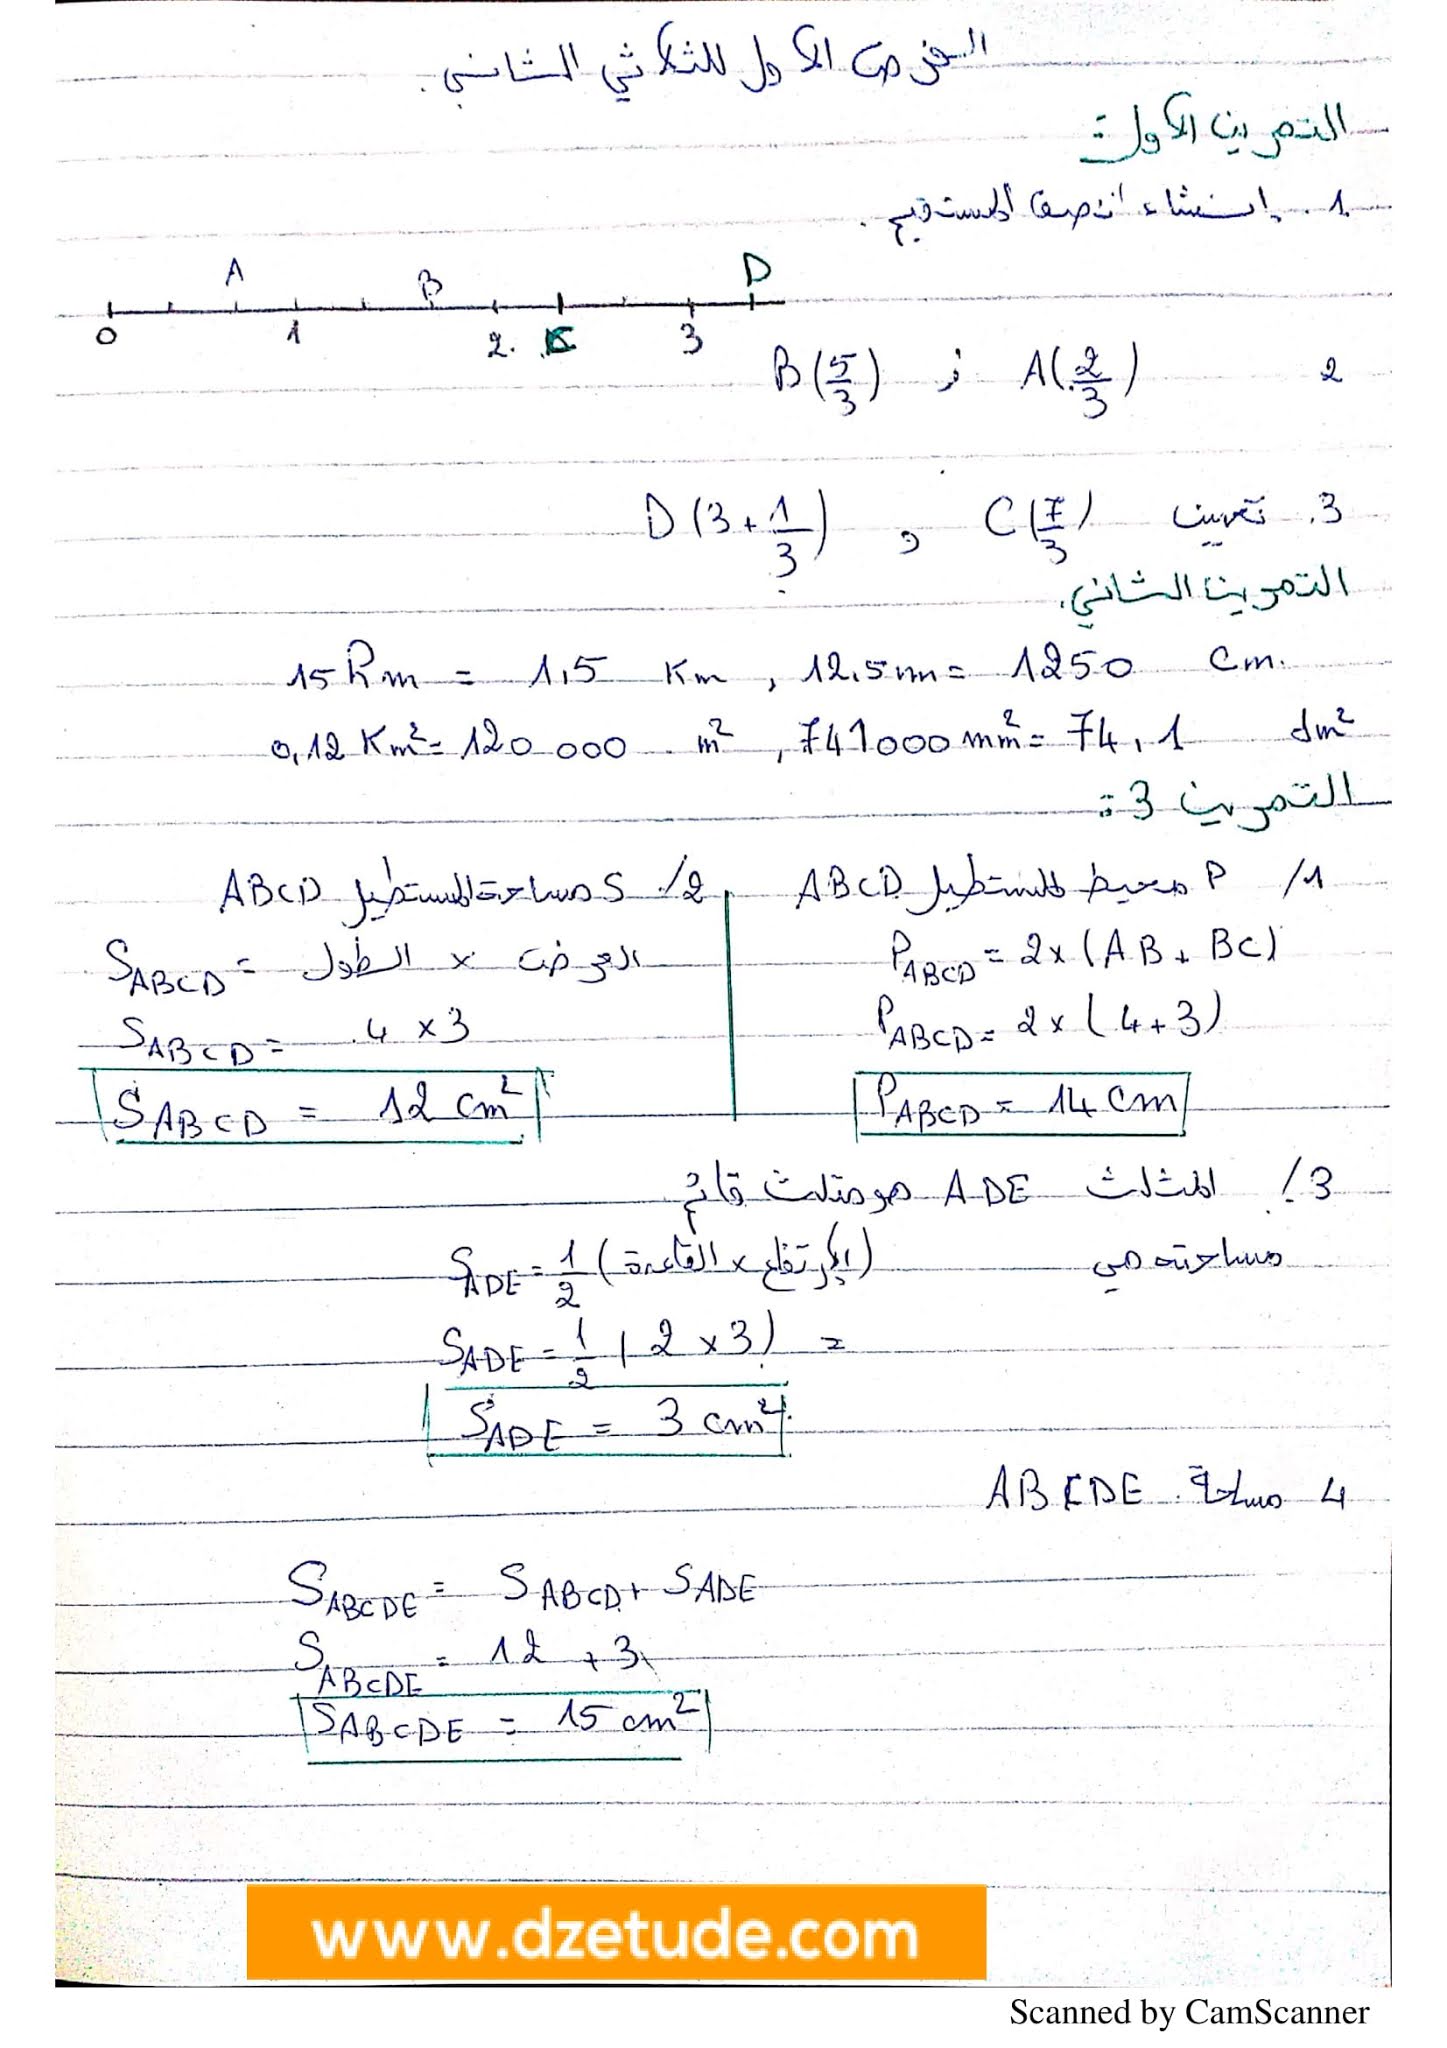 الفرض الأول للثلاثي الثاني.
التمرين الأول:
1. إنشاء نصف المستقيم.
A B D
0 1 2. C 3
2 A(2/3) و B(5/3)
3. تعيين C(7/3) و D(3+1/3)
التمرين الثاني.
15 hm = 1,5 Km , 12,5 m = 1250 Cm.
0,12 Km² = 120 000 m² , 741000 mm² = 74,1 dm²
التمرين 3:
1/ P محيط المستطيل ABCD
P_ABCD = 2 x (AB + BC)
P_ABCD = 2 x (4+3)
P_ABCD = 14 cm
2/. S مساحة المستطيل ABCD
S_ABCD = العرض x الطول
S_ABCD = 4 x 3
S_ABCD = 12 cm²
3/. المثلث ADE هو مثلث قائم
مساحته هي S_ADE = 1/2 (الإرتفاع x القاعدة)
S_ADE = 1/2 (2 x 3) =
S_ADE = 3 cm²
4 مساحة ABCDE
S_ABCDE = S_ABCD + S_ADE
S_ABCDE = 12 + 3
S_ABCDE = 15 cm²
www.dzetude.com
Scanned by CamScanner